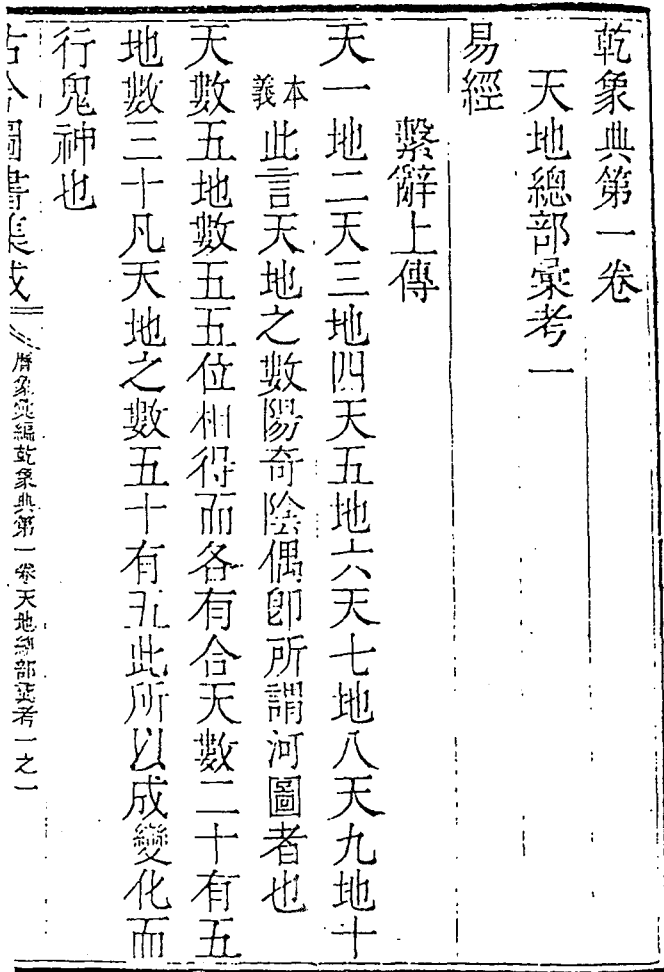 乾象典第一卷
天地總部彙考一
易經
繫辭上傳
天一地二天三地四天五地六天七地八天九地十
本義此言天地之數陽奇陰偶卽所謂河圖者也
天數五地數五五位相得而各有合天數二十有五
地數三十凡天地之數五十有五此所以成變化而
行鬼神也
古今圖書集成曆象彙編乾象典第一卷天地總部彙考一之一